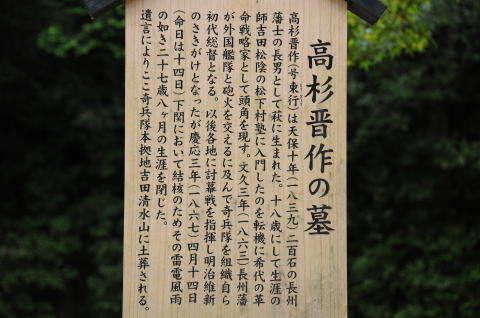 高杉晋作の墓
高杉晋作(号東行)は天保十年(一八三九)二百石の長州
藩士の長男として萩に生まれた。十八歳にして生涯の
師吉田松陰の松下村塾に入門したのを転機に希代の革
命戦略家として頭角を現す。文久三年(一八六三)長州藩
が外国艦隊と砲火を交えるに及んで奇兵隊を組織自ら
初代総督となる。以後各地に討幕戦を指揮し明治維新
のさきがけとなったが慶応三年(一八六七)四月十四日
(命日は十四日)下関において結核のためその雷電風雨
の如き二十七歳八ヶ月の生涯を閉じた。
遺言によりここ奇兵隊本拠地吉田清水山に土葬される。